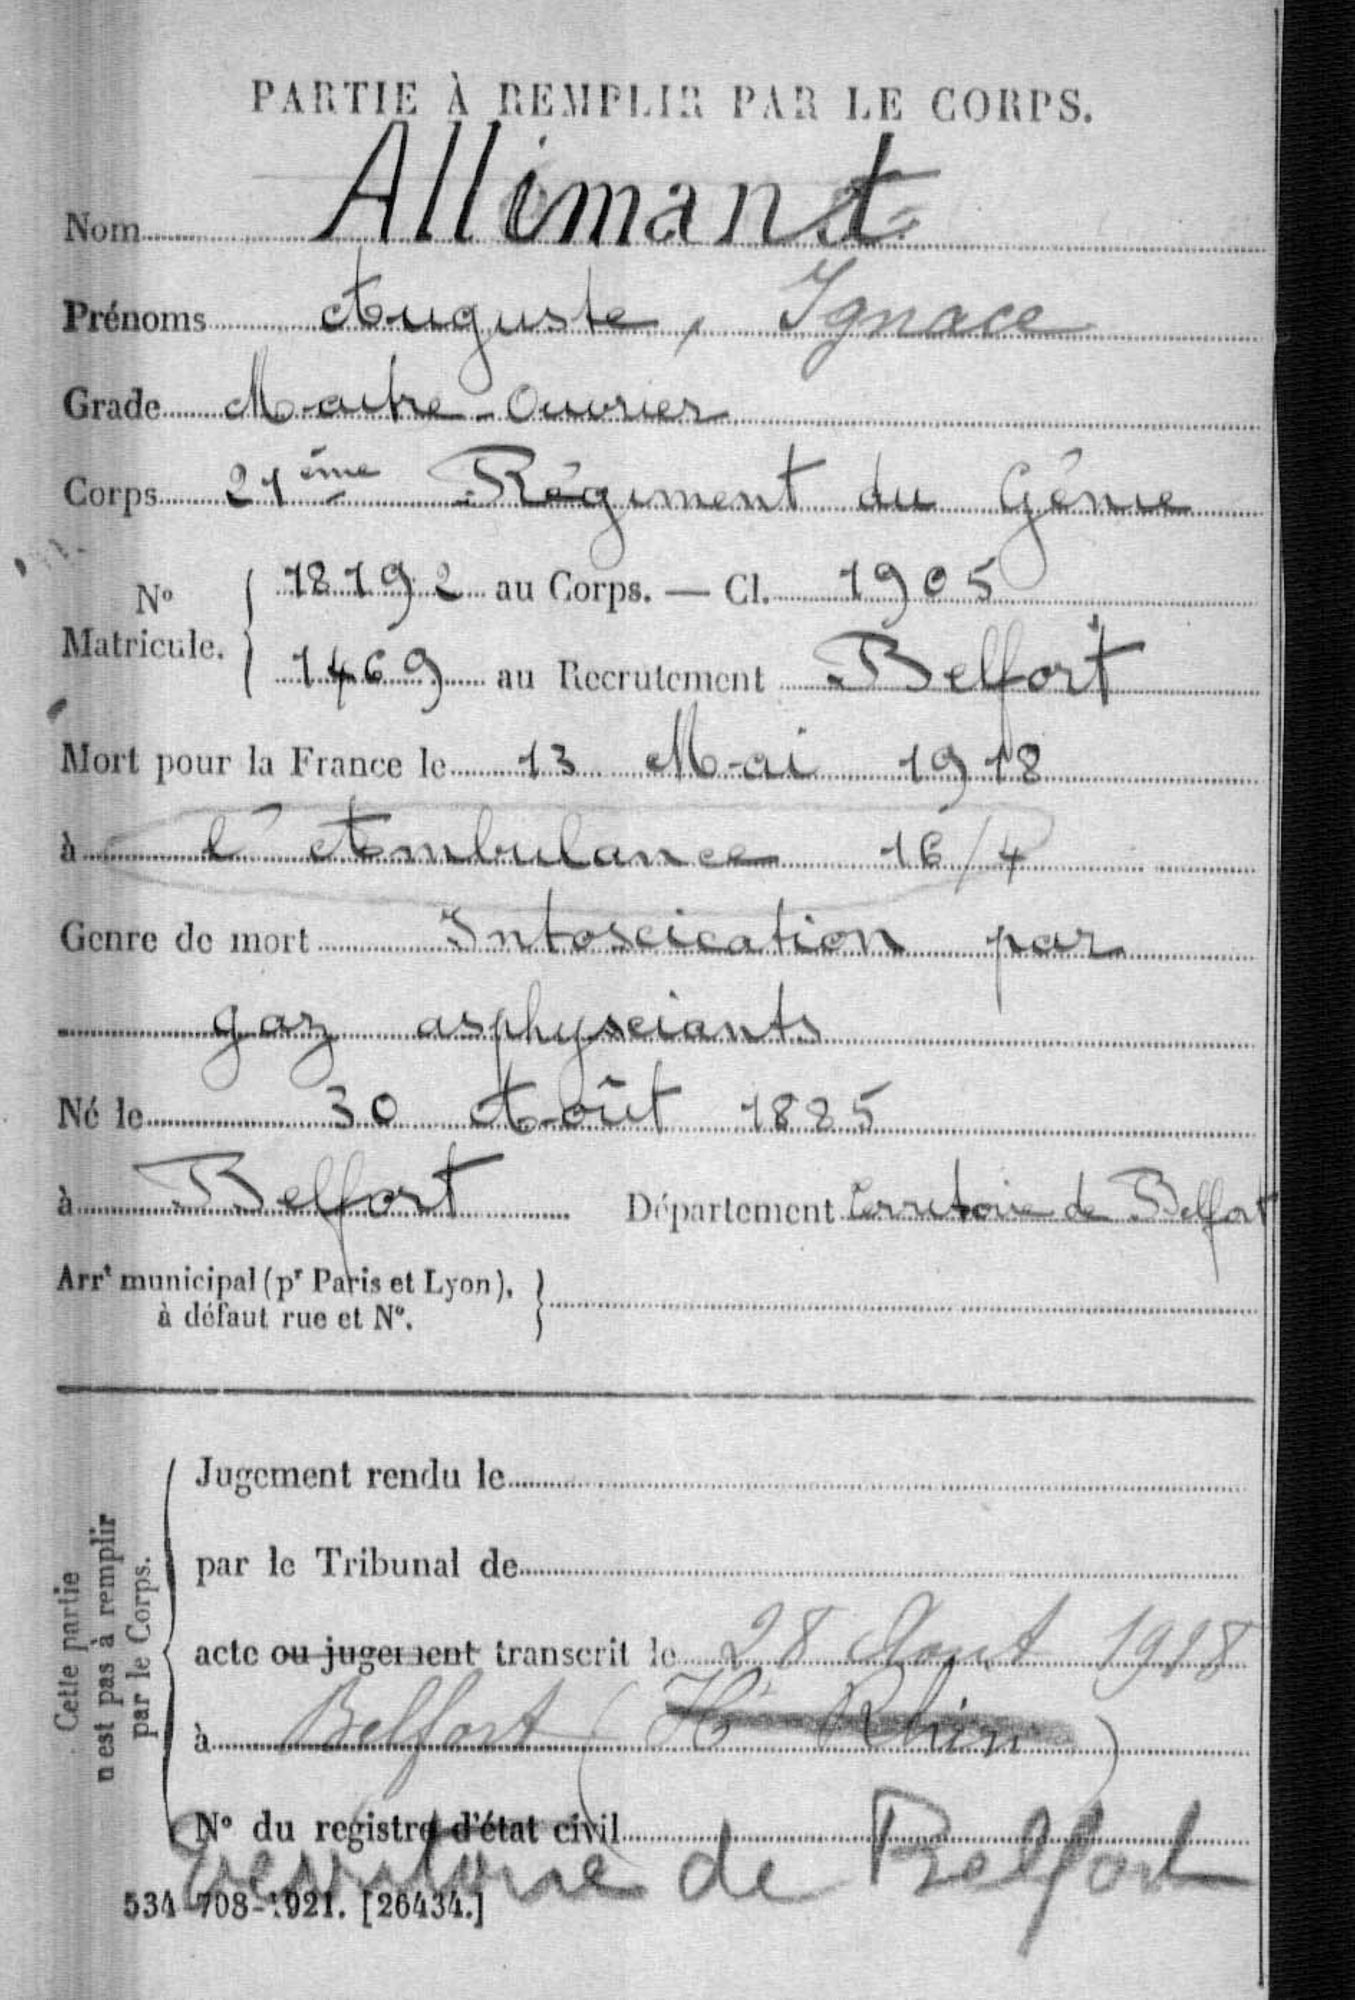 PARTIE À REMPLIR PAR LE CORPS.
Nom Allimant
Prénoms Auguste, Ignace
Grade Maitre-Ouvrier
Corps 21ème Régiment du Génie
N° Matricule. { 18192 au Corps. — Cl. 1905
1469 au Recrutement Belfort
Mort pour la France le 13 Mai 1918
à l'Ambulance 16/4
Genre de mort Intoscication par
gaz asphysciants
Né le 30 Août 1885
à Belfort Département Territoire de Belfort
Arrt municipal (pr Paris et Lyon),
à défaut rue et N°.
Cette partie
n'est pas à remplir
par le Corps.
Jugement rendu le
par le Tribunal de
acte ou jugement transcrit le 28 Aout 1918
à Belfort (Ht Rhin)
N° du registre d'état civil
Territoire de Belfort
534-708-1921. [26434.]